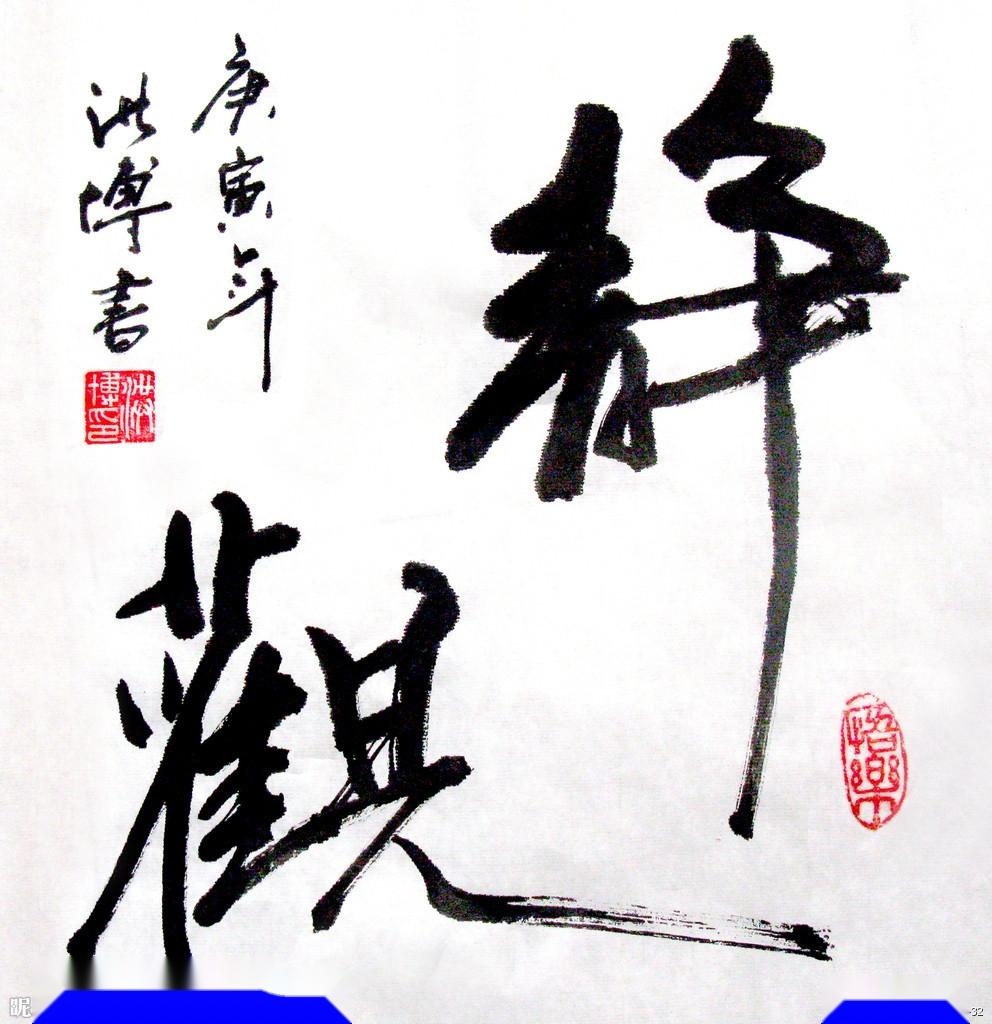 靜觀
庚寅年
洪博書
洪博印
悟樂
昵
-32